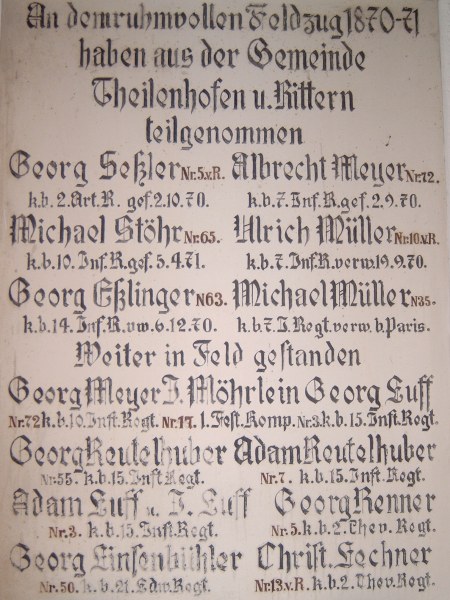 An dem ruhmvollen Feldzug 1870-71
haben aus der Gemeinde
Theilenhofen u. Rittern
teilgenommen
Georg Seßler Nr.5.v.R. Albrecht Meyer Nr.72.
k.b.2.Art.R. gef.2.10.70. k.b.7.Inf.R.gef.2.9.70.
Michael Stöhr Nr.65. Ulrich Müller Nr.10.v.R.
k.b.10.Inf.R.gef.5.4.71. k.b.7.Inf.R.verw.19.9.70.
Georg Eßlinger N63. Michael Müller N35.
k.b.14.Inf.R.vw.6.12.70. k.b.7.I.Regt.verw.b.Paris.
Weiter in Feld gestanden
Georg Meyer J. Möhrlein Georg Luff
Nr.72 k.b.10.Inft.Regt. Nr.17. 1.Fest.Komp. Nr.3.k.b.15.Inft.Regt.
Georg Reutelhuber Adam Reutelhuber
Nr.55. k.b.15.Inft.Regt. Nr.7. k.b.15.Inft.Regt.
Adam Luff u. J. Luff Georg Renner
Nr.3. k.b.15.Inft.Regt. Nr.5.k.b.2.Chev.Regt.
Georg Linsenbühler Christ. Lechner
Nr.50. k.b.21.Ldw.Regt. Nr.13.v.R. k.b.2.Chev.Regt.